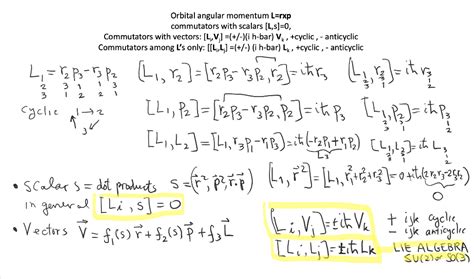 Orbital angular momentum L=rxp
commutators with scalars [L,s]=0,
Commutators with vectors: [Lᵢ,Vⱼ] =(+/-) (i h-bar) Vₖ , +cyclic , - anticyclic
Commutators among L's only: [[Lᵢ,Lⱼ] =(+/-) (i h-bar) Lₖ , +cyclic , - anticyclic
L₁ = r₂p₃ - r₃p₂
2 3 1 1 3
3 1 2 2 1
cyclic 1 → 2
3
[L₁, r₂] = [r₂p₃ - r₃p₂, r₂] = iħr₃
[L₁, p₂] = [r₂p₃ - r₃p₂, p₂] = iħp₃
[L₁, L₂] = [L₁, r₃p₁ - r₁p₃] = iħ(-r₂p₁ + r₁p₂)
L₃
[L₁, r₃] = iħr₂
[L₂, p₃] = iħp₁
[L₂, L₃] = iħL₁
• Scalar s = dot products S = (r⃗², p⃗², r⃗·p⃗)
in general [Lᵢ, s] = 0
[L₁, r⃗²] = [L₁, r₁²+r₂²+r₃²] = 0 + iħ(2r₂r₃ - 2r₃r₂)
0
• Vectors V⃗ = f₁(s) r⃗ + f₂(s) p⃗ + f₃ L⃗
[Lᵢ, Vⱼ] = ±iħVₖ
[Lᵢ, Lⱼ] = ±iħLₖ
+ ijk cyclic
- ijk anticyclic
LIE ALGEBRA
SU(2) or SO(3)